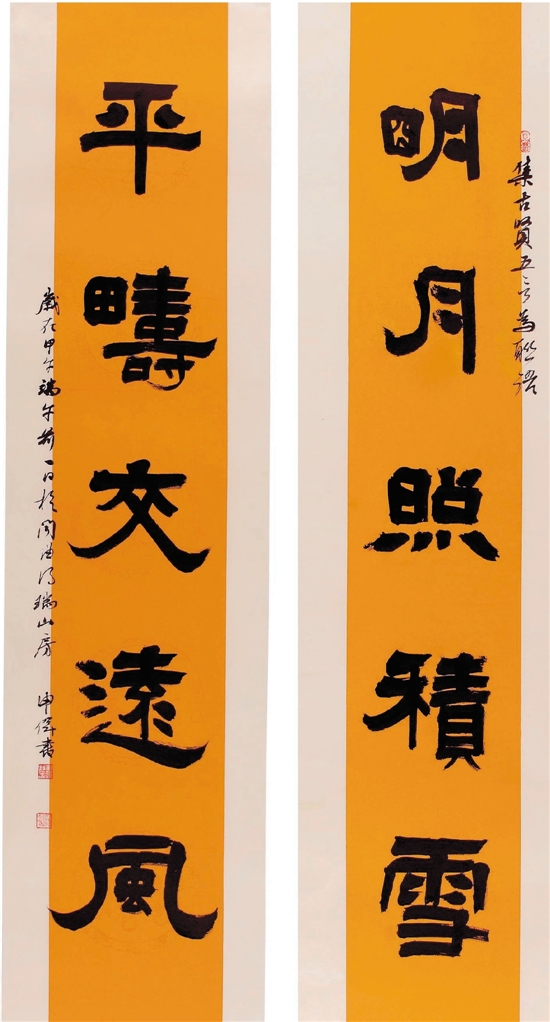 集古賢五言為聯語
明月照積雪
平疇交遠風
歲在甲午端午前一日於聞曲得瑞山房 申偉書